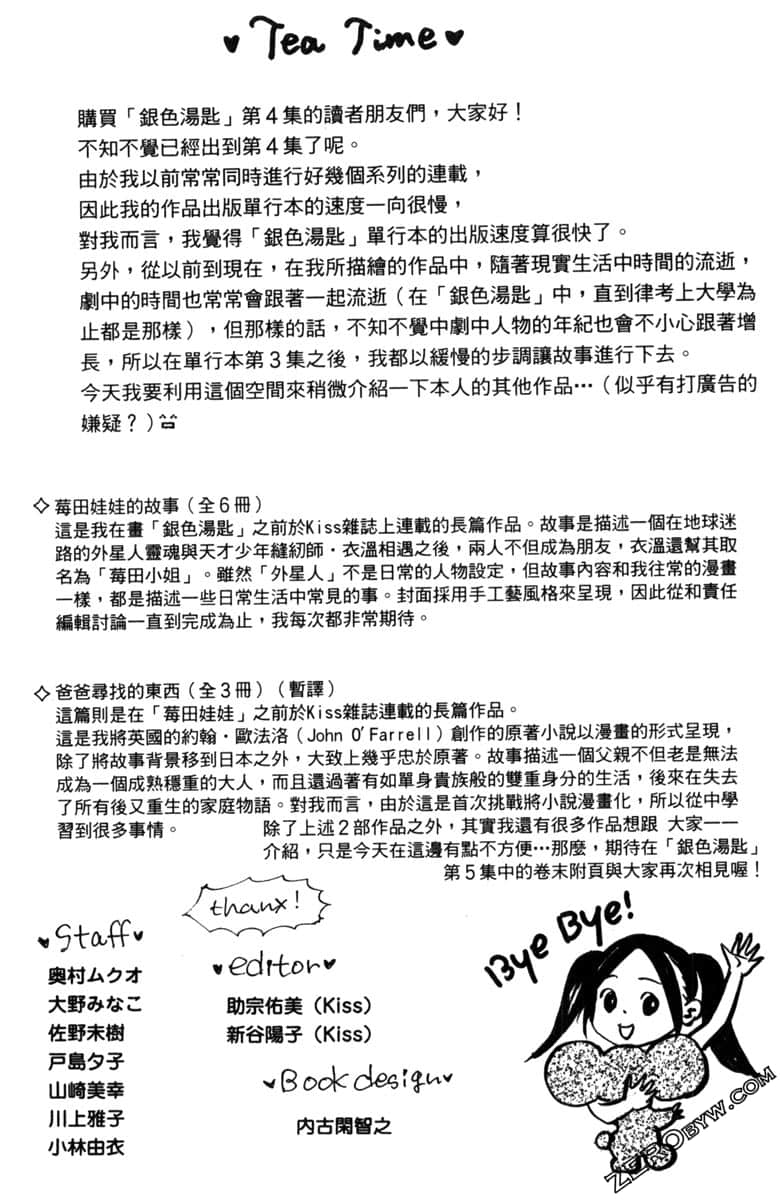 ♥ Tea Time ♥
購買「銀色湯匙」第4集的讀者朋友們，大家好！
不知不覺已經出到第4集了呢。
由於我以前常常同時進行好幾個系列的連載，
因此我的作品出版單行本的速度一向很慢，
對我而言，我覺得「銀色湯匙」單行本的出版速度算很快了。
另外，從以前到現在，在我所描繪的作品中，隨著現實生活中時間的流逝，
劇中的時間也常常會跟著一起流逝（在「銀色湯匙」中，直到律考上大學為
止都是那樣），但那樣的話，不知不覺中劇中人物的年紀也會不小心跟著增
長，所以在單行本第3集之後，我都以緩慢的步調讓故事進行下去。
今天我要利用這個空間來稍微介紹一下本人的其他作品…（似乎有打廣告的
嫌疑？）^^
◇莓田娃娃的故事（全6冊）
這是我在畫「銀色湯匙」之前於Kiss雜誌上連載的長篇作品。故事是描述一個在地球迷
路的外星人靈魂與天才少年縫紉師・衣溫相遇之後，兩人不但成為朋友，衣溫還幫其取
名為「莓田小姐」。雖然「外星人」不是日常的人物設定，但故事內容和我往常的漫畫
一樣，都是描述一些日常生活中常見的事。封面採用手工藝風格來呈現，因此從和責任
編輯討論一直到完成為止，我每次都非常期待。
◇爸爸尋找的東西（全3冊）（暫譯）
這篇則是在「莓田娃娃」之前於Kiss雜誌連載的長篇作品。
這是我將英國的約翰・歐法洛（John O'Farrell）創作的原著小說以漫畫的形式呈現，
除了將故事背景移到日本之外，大致上幾乎忠於原著。故事描述一個父親不但老是無法
成為一個成熟穩重的大人，而且還過著有如單身貴族般的雙重身分的生活，後來在失去
了所有後又重生的家庭物語。對我而言，由於這是首次挑戰將小說漫畫化，所以從中學
習到很多事情。
除了上述2部作品之外，其實我還有很多作品想跟 大家一一
介紹，只是今天在這邊有點不方便…那麼，期待在「銀色湯匙」
第5集中的卷末附頁與大家再次相見喔！
thanx!
♥Staff♥
奥村ムクオ
大野みなこ
佐野末樹
戸島夕子
山崎美幸
川上雅子
小林由衣
♥editor♥
助宗佑美（Kiss）
新谷陽子（Kiss）
♥Book design♥
内古閑智之
Bye Bye!
ZEROBYW.COM